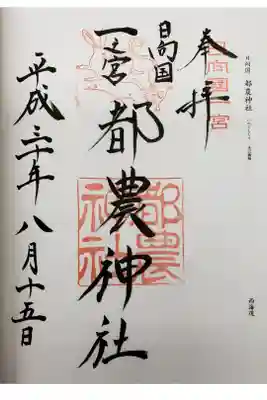 日向国 都農神社
西海道
奉拝
日向国一宮
日向国
一之宮 都農神社
都農神社
平成三十年八月十五日